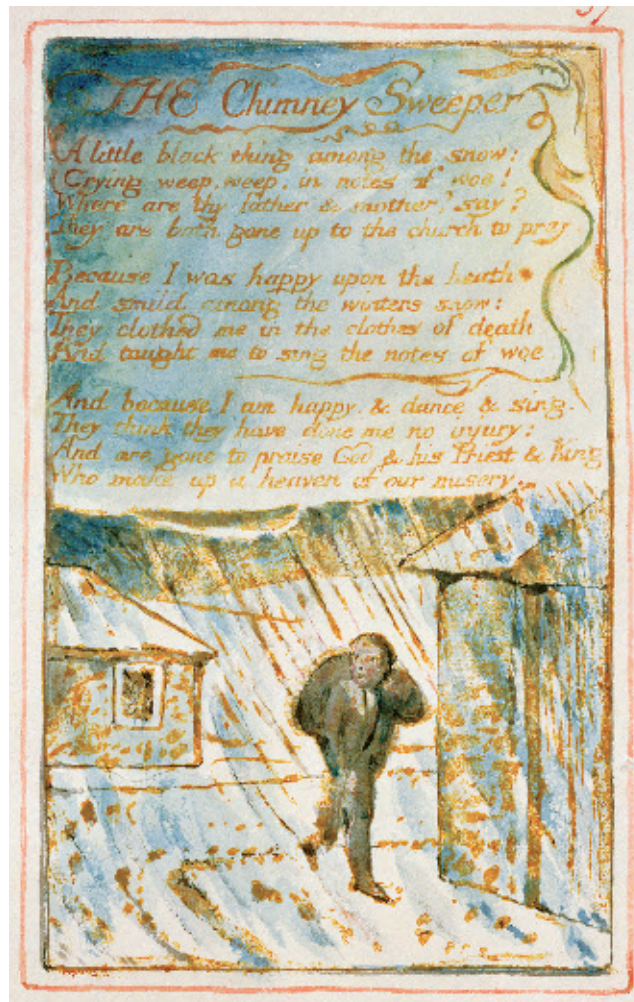 THE Chimney Sweeper
A little black thing among the snow:
Crying weep, weep, in notes of woe!
Where are thy father & mother? say?
They are both gone up to the church to pray.
Because I was happy upon the heath,
And smil'd among the winters snow:
They clothed me in the clothes of death
And taught me to sing the notes of woe.
And because I am happy, & dance & sing,
They think they have done me no injury:
And are gone to praise God & his Priest & King
Who make up a heaven of our misery.